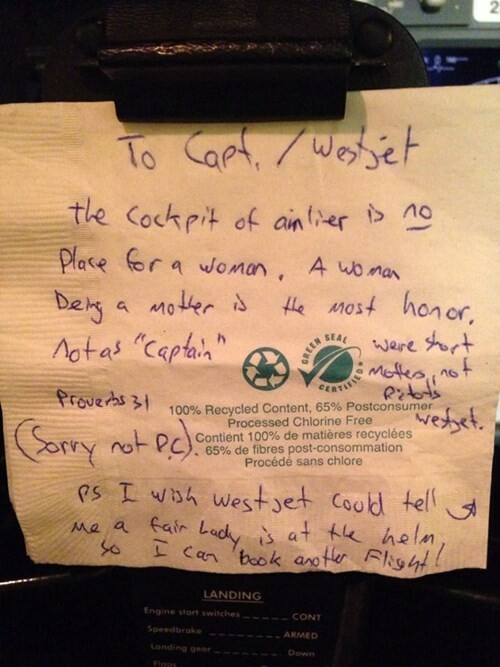 2
To Capt. / Westjet
the cockpit of airliner is no
Place for a woman. A woman
being a mother is the most honor.
Not as "Captain"
were short
mothers, not
Pilots
westjet.
Proverbs 31
(Sorry not P.C.)
GREEN SEAL
CERTIFIED
100% Recycled Content, 65% Postconsumer
Processed Chlorine Free
Contient 100% de matières recyclées
65% de fibres post-consommation
Procédé sans chlore
PS I wish westjet could tell
me a fair Lady is at the helm
so I can book another Flight!
LANDING
Engine start switches _ _ _ _ _ _ CONT
Speedbrake _ _ _ _ _ _ ARMED
Landing gear _ _ _ _ _ _ Down
Flaps